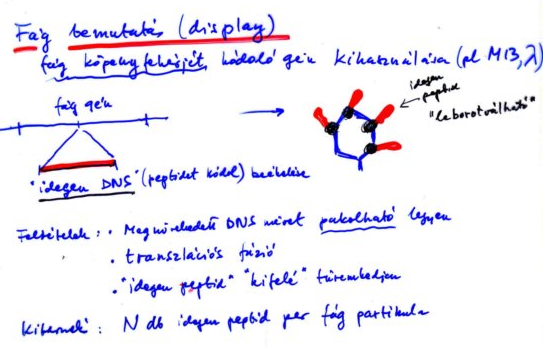 Fág bemutatás (display)
fág köpenyfehérjét kódoló gén kihasználása (pl M13, λ)
fág gén
idegen
peptid
"laborotválható"
"idegen DNS" (peptidet kódol) beékelése
Feltételek: • Megnövekedett DNS méret pakolható legyen
• transzlációs fúzió
• "idegen peptid" "kifelé" türemkedjen
Kitermelé: N db idegen peptid per fág partikula